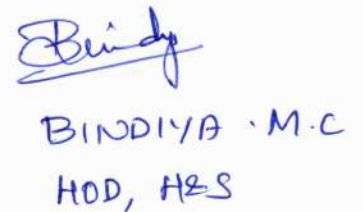 Bindy
BINDIYA . M.C
HOD, H&S